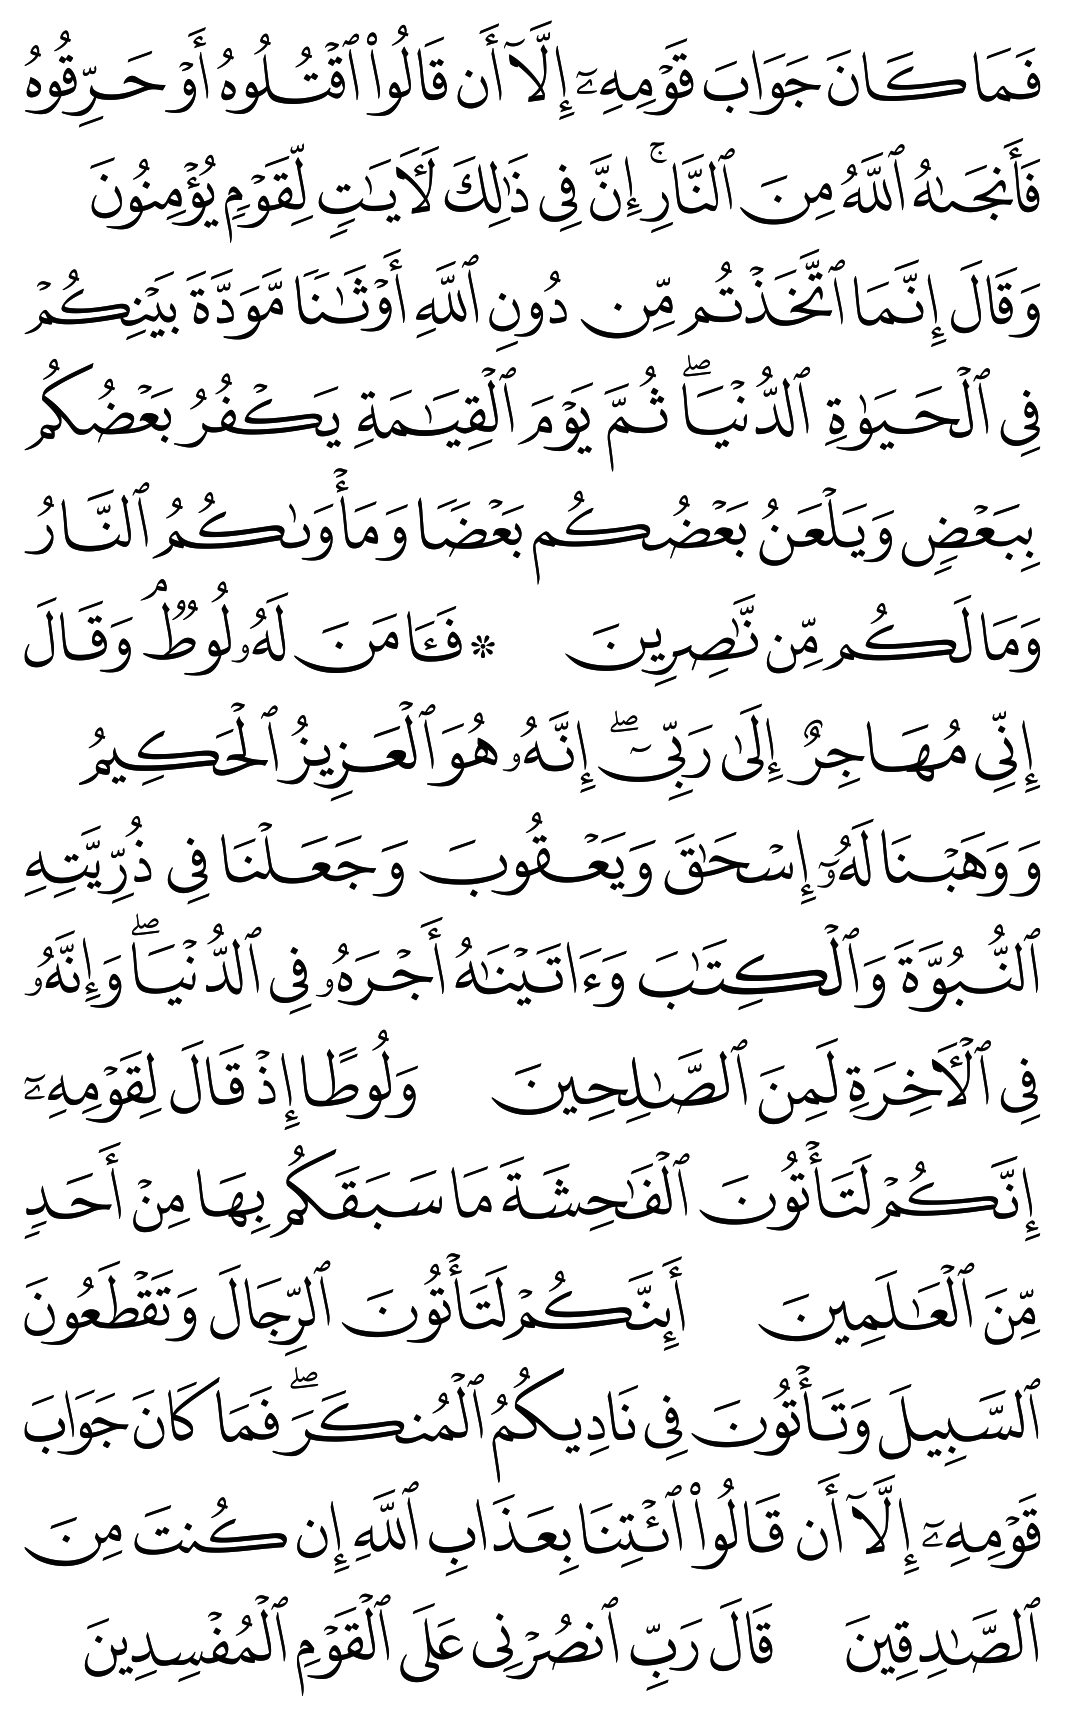 فَمَا كَانَ جَوَابَ قَوۡمِهِۦٓ إِلَّآ أَن قَالُواْ ٱقۡتُلُوهُ أَوۡ حَرِّقُوهُ
فَأَنجَىٰهُ ٱللَّهُ مِنَ ٱلنَّارِۚ إِنَّ فِي ذَٰلِكَ لَأٓيَٰتٖ لِّقَوۡمٖ يُؤۡمِنُونَ
وَقَالَ إِنَّمَا ٱتَّخَذۡتُم مِّن دُونِ ٱللَّهِ أَوۡثَٰنٗا مَّوَدَّةَ بَيۡنِكُمۡ
فِي ٱلۡحَيَوٰةِ ٱلدُّنۡيَاۖ ثُمَّ يَوۡمَ ٱلۡقِيَٰمَةِ يَكۡفُرُ بَعۡضُكُم
بِبَعۡضٖ وَيَلۡعَنُ بَعۡضُكُم بَعۡضٗا وَمَأۡوَىٰكُمُ ٱلنَّارُ
وَمَا لَكُم مِّن نَّٰصِرِينَ ۞ فَـَٔامَنَ لَهُۥ لُوطٞۘ وَقَالَ
إِنِّي مُهَاجِرٌ إِلَىٰ رَبِّيٓۖ إِنَّهُۥ هُوَ ٱلۡعَزِيزُ ٱلۡحَكِيمُ
وَوَهَبۡنَا لَهُۥٓ إِسۡحَٰقَ وَيَعۡقُوبَ وَجَعَلۡنَا فِي ذُرِّيَّتِهِ
ٱلنُّبُوَّةَ وَٱلۡكِتَٰبَ وَءَاتَيۡنَٰهُ أَجۡرَهُۥ فِي ٱلدُّنۡيَاۖ وَإِنَّهُۥ
فِي ٱلۡأٓخِرَةِ لَمِنَ ٱلصَّٰلِحِينَ وَلُوطًا إِذۡ قَالَ لِقَوۡمِهِۦٓ
إِنَّكُمۡ لَتَأۡتُونَ ٱلۡفَٰحِشَةَ مَا سَبَقَكُم بِهَا مِنۡ أَحَدٖ
مِّنَ ٱلۡعَٰلَمِينَ أَئِنَّكُمۡ لَتَأۡتُونَ ٱلرِّجَالَ وَتَقۡطَعُونَ
ٱلسَّبِيلَ وَتَأۡتُونَ فِي نَادِيكُمُ ٱلۡمُنكَرَۖ فَمَا كَانَ جَوَابَ
قَوۡمِهِۦٓ إِلَّآ أَن قَالُواْ ٱئۡتِنَا بِعَذَابِ ٱللَّهِ إِن كُنتَ مِنَ
ٱلصَّٰدِقِينَ قَالَ رَبِّ ٱنصُرۡنِي عَلَى ٱلۡقَوۡمِ ٱلۡمُفۡسِدِينَ